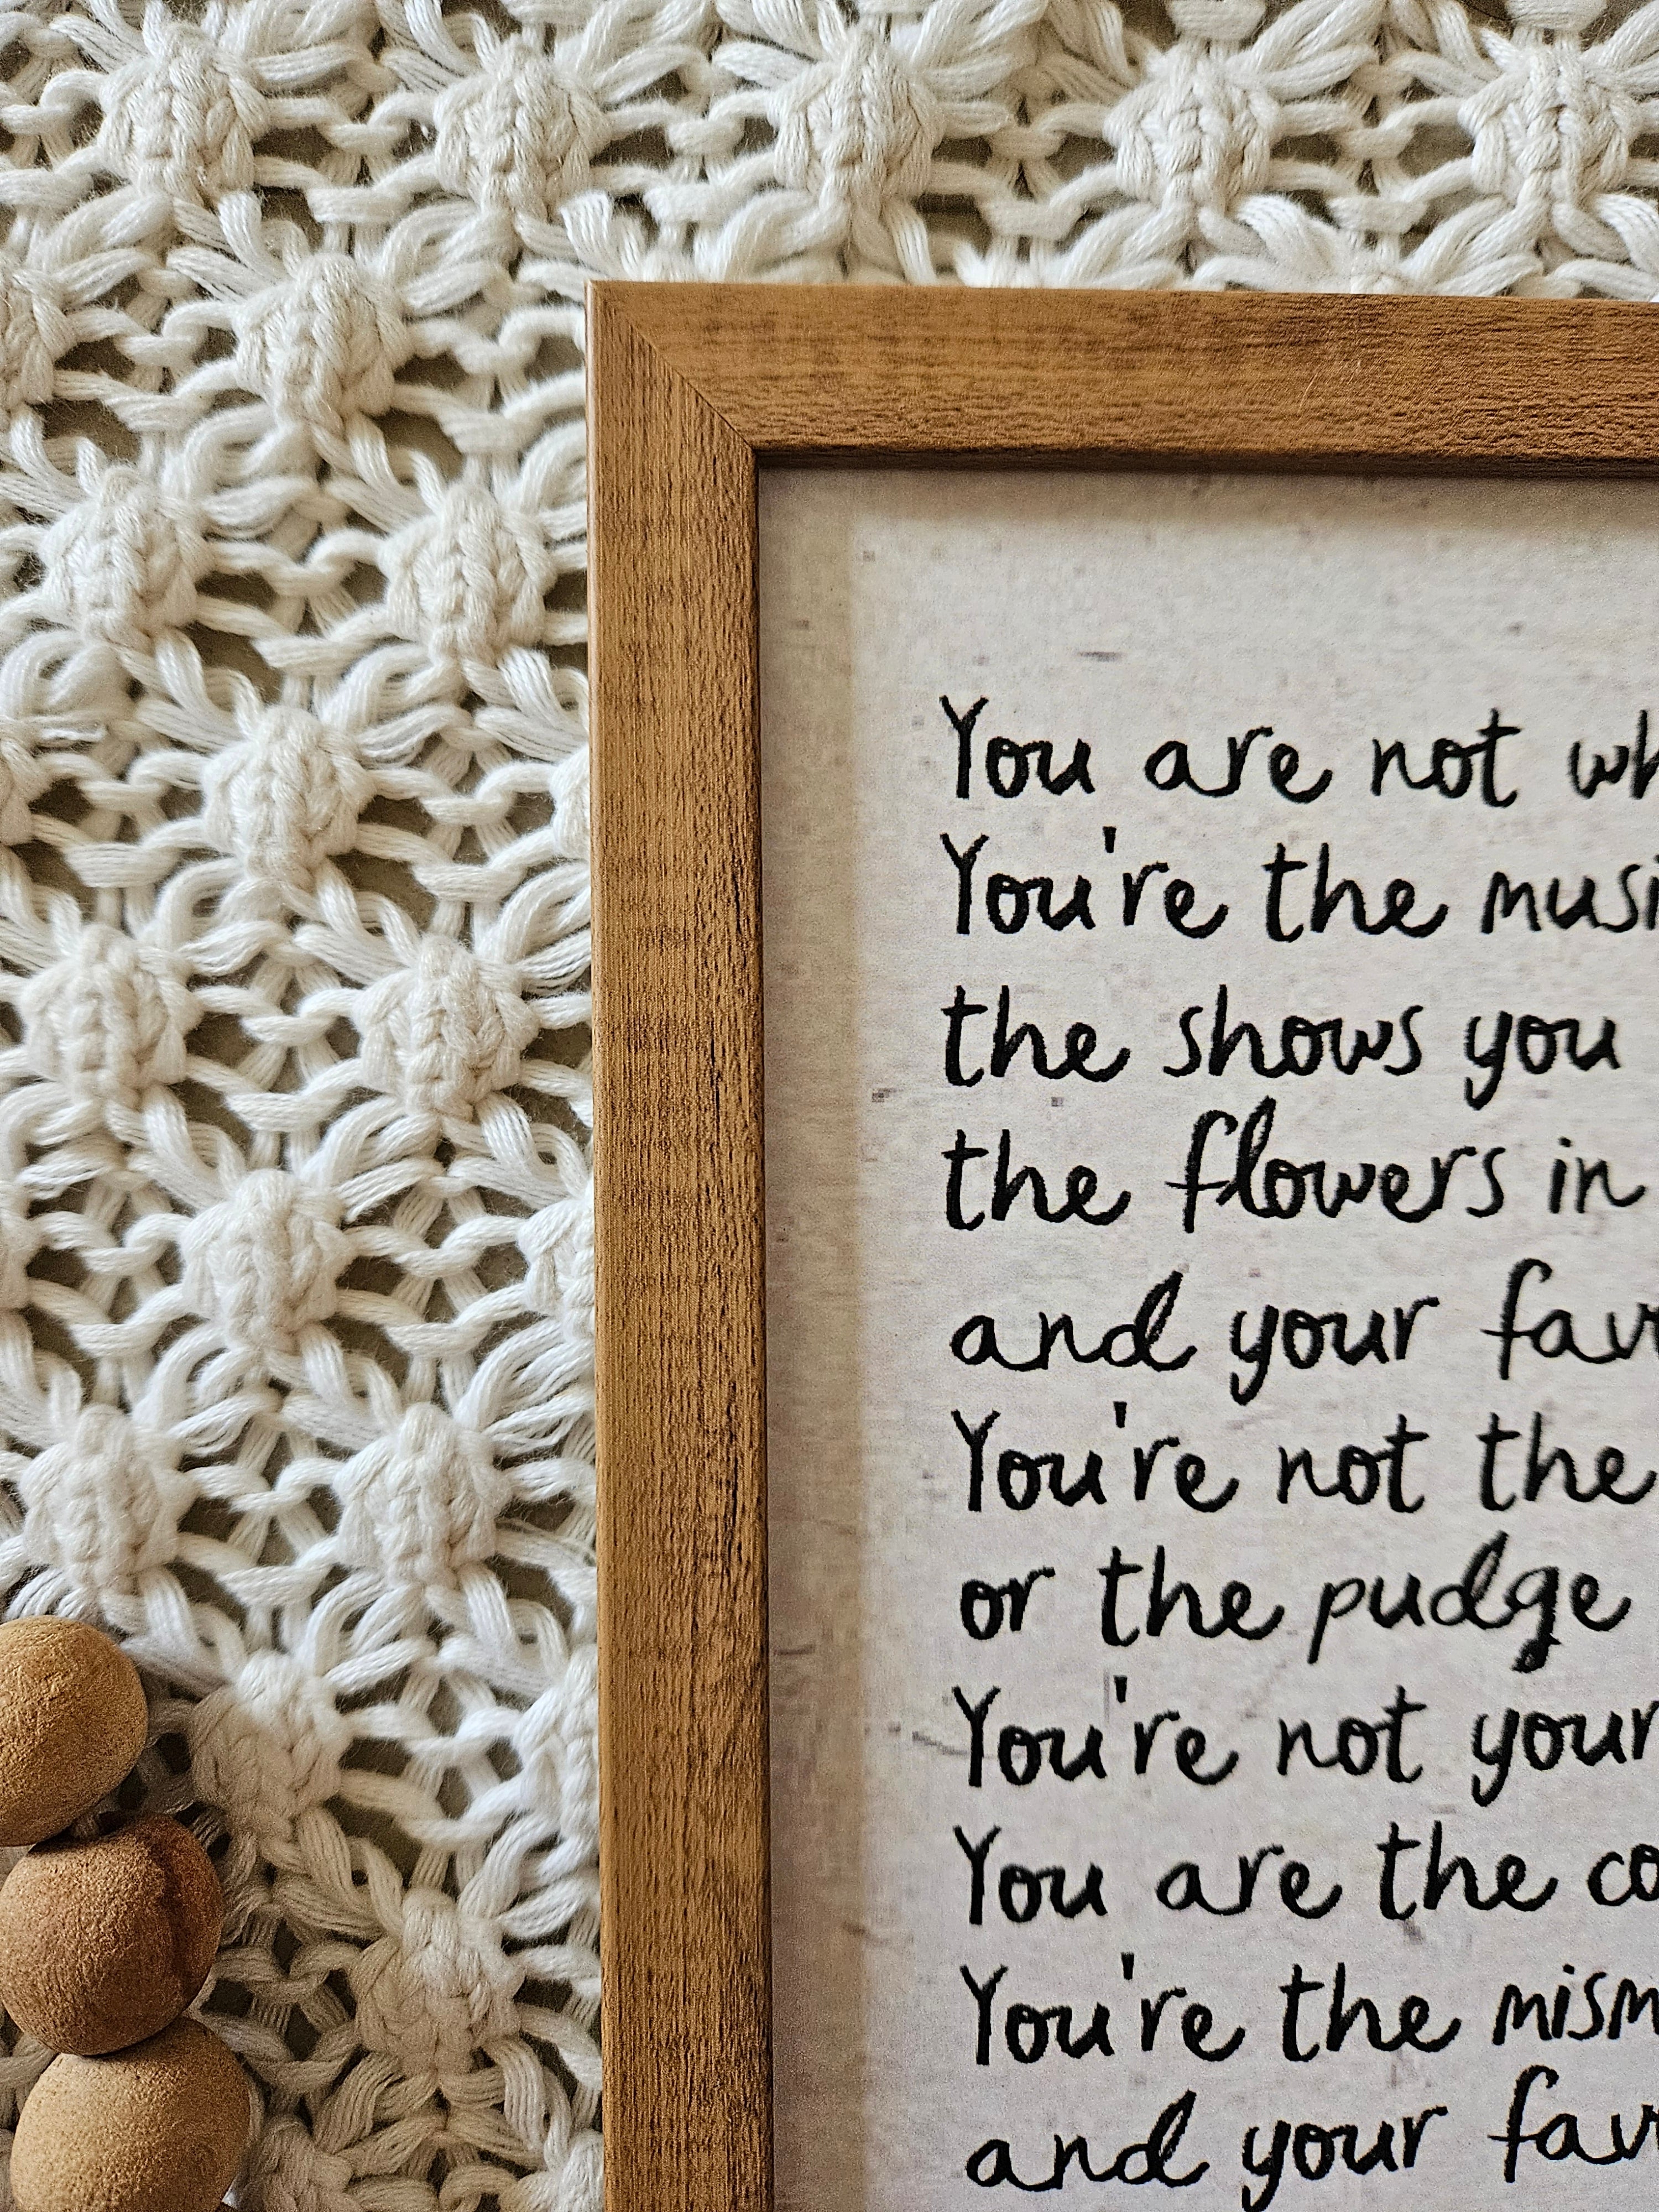 You are not wh
You're the musi
the shows you
the flowers in
and your favo
You're not the
or the pudge
You're not your
You are the co
You're the mism
and your favo